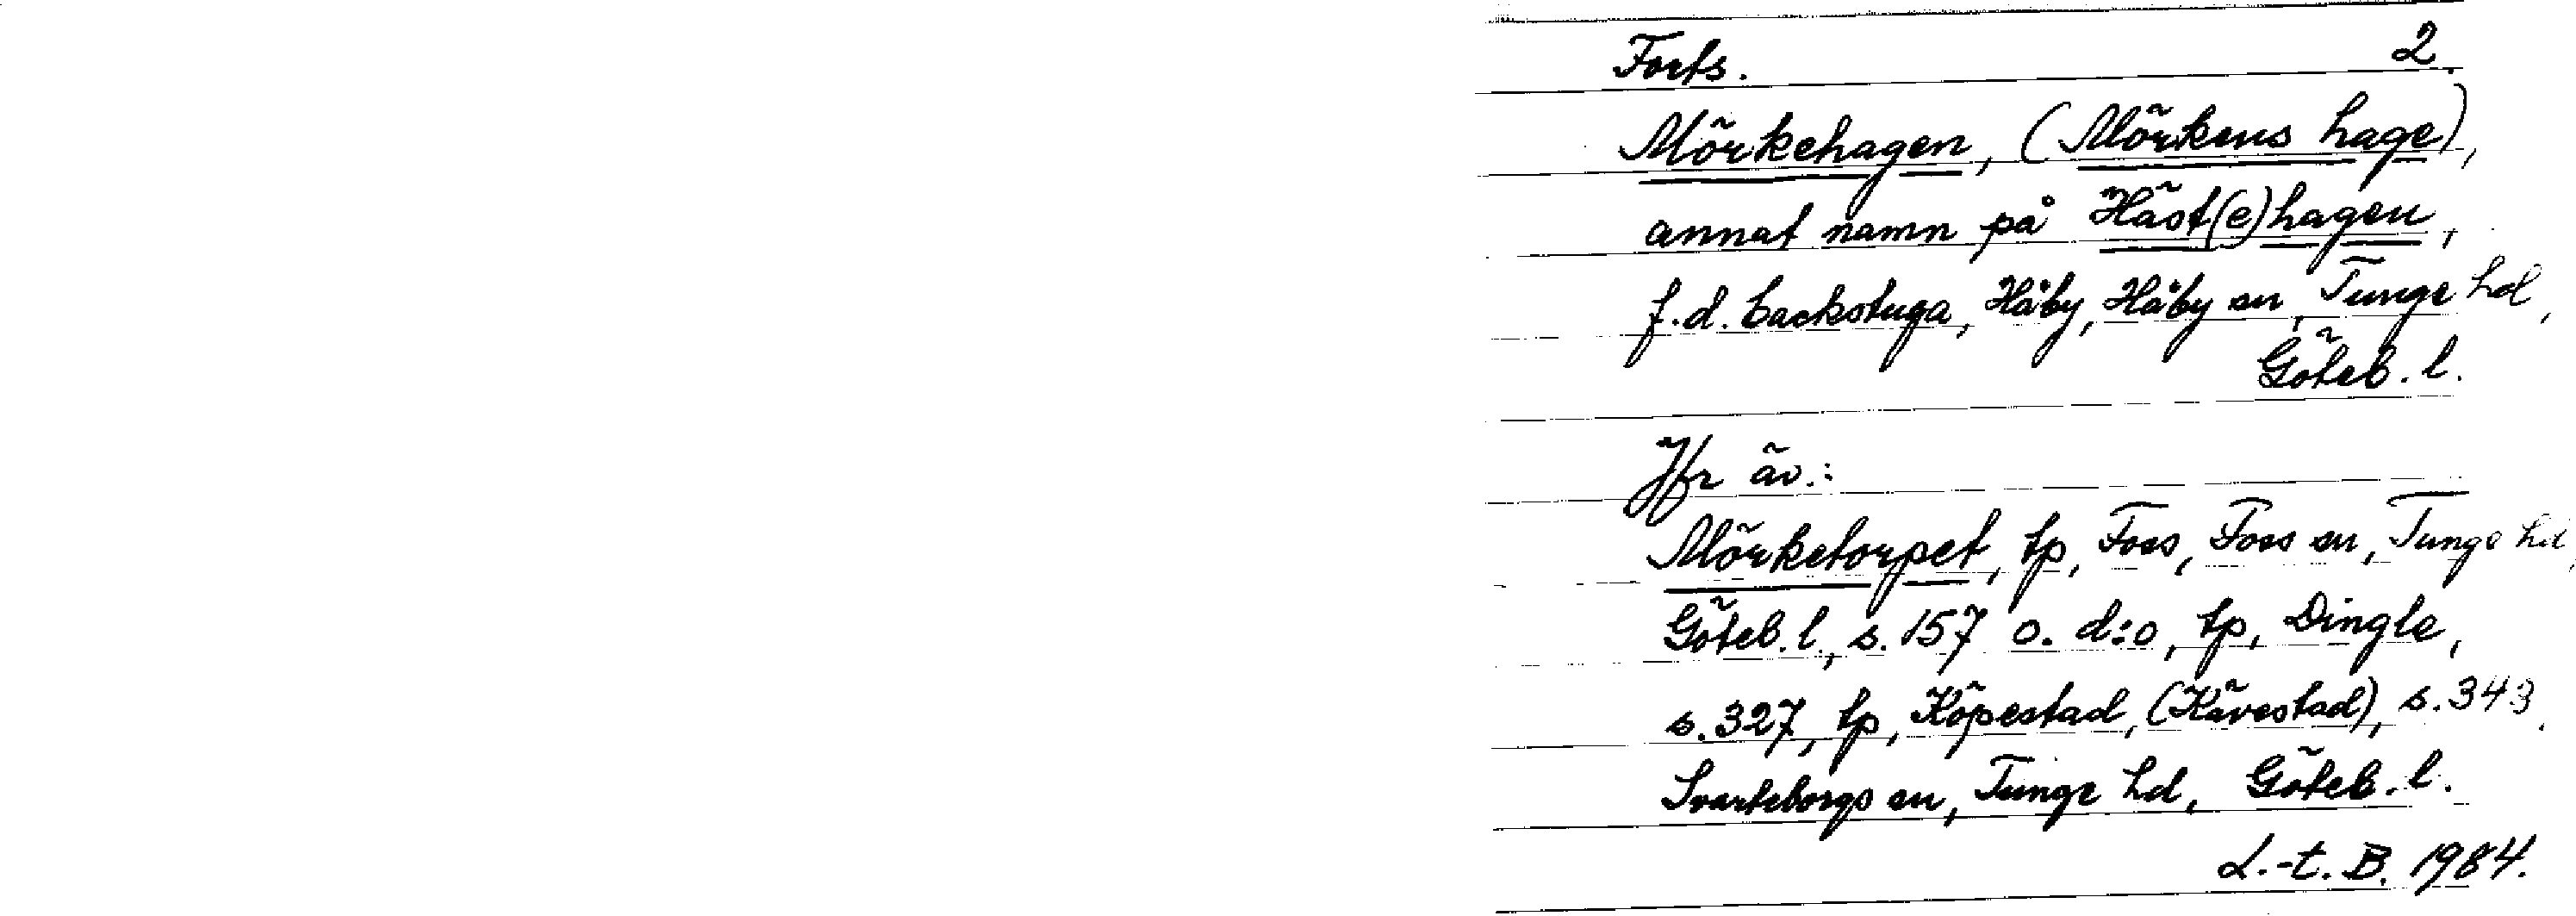 Forts. 2.
Mörkehagen, (Mörkens hage),
annat namn på Häst(e)hagen,
f.d. backstuga, Håby, Håby sn, Tunge hd,
Göteb. l.
Jfr äv.:
Mörketorpet, tp, Foss, Foss sn, Tunge hd,
Göteb. l., s. 157 o. d:o, tp, Dingle,
s. 327, tp, Köpestad, (Kävestad), s. 343,
Svarteborgs sn, Tunge hd, Göteb. l.
L.-t. B. 1984.